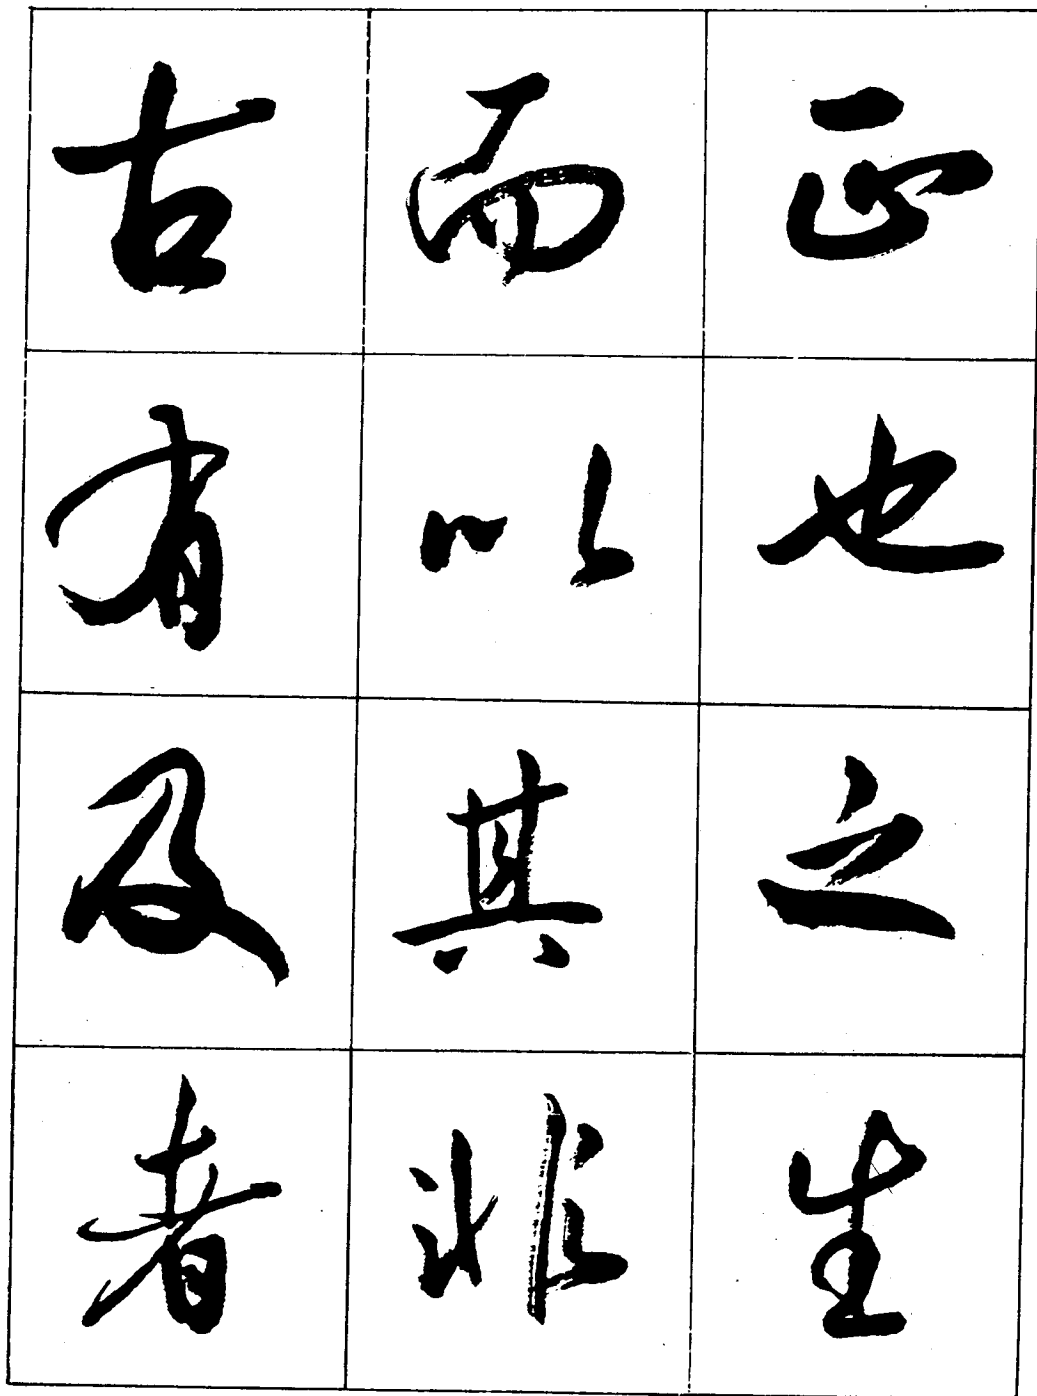 正也之生
而以其非
古有及者